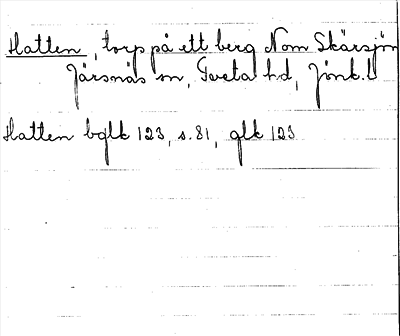 Hatten, torp på ett berg Nom Skärsjön
Järsnäs sn, Tveta hd, Jönk. l
Hatten bglk 123, s. 81, glk 123